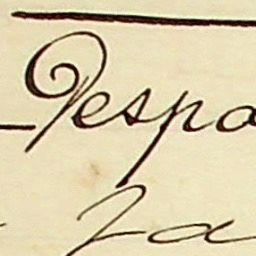 Despa
fa